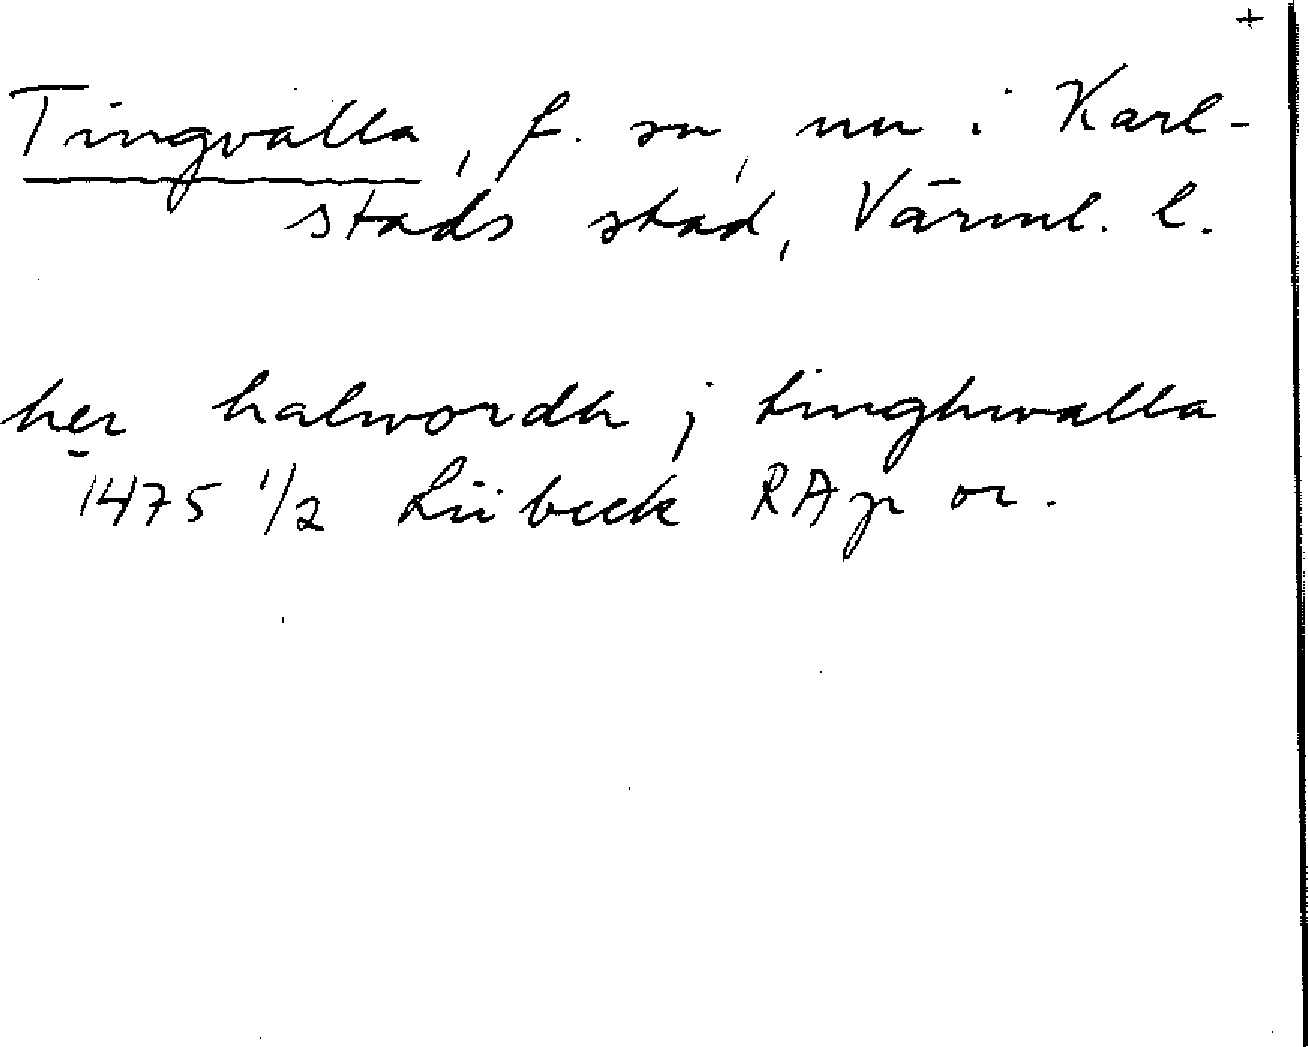 +
Tingvalla, f. sn, nu i Karl-
stads stad, Värml. l.
her halwordh j tinghwalla
1475 1/2 Lübeck RAp or.